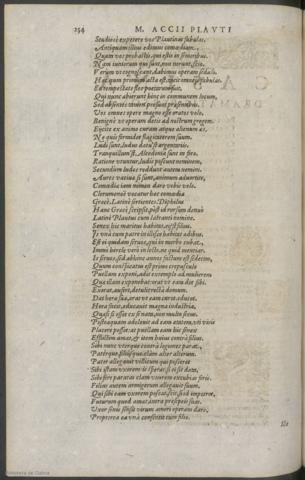 254 M. ACCII PLAVTI
Studiosè expetere vos Plautinas fabulas.
Antiquam illius edimus comœdiam,
Quam vos probastis, qui estis in senioribus.
Nam iuniorum qui sunt, non norunt, scio.
Verùm vt cognoscant, dabimus operam sedulò.
Hæc quum primùm acta est, vicit omneis fabulas.
Ea tempestate flos poetarum fuit,
Qui nunc abierunt hinc in communem locum,
Sed absentes tamen prosunt præsentibus.
Vos omnes opere magno esse oratos volo,
Benignè vt operam detis ad nostrum gregem.
Eiicite ex animo curam atque alienum æs.
Ne quis formidet flagitatorem suum.
Ludi sunt, ludus datus est argentariis.
Tranquillum est, Alcedonia sunt in foro.
Ratione vtuntur, ludis poscunt neminem,
Secundùm ludos reddunt autem nemini.
Aures vociuæ si sunt, animum aduortite,
Comœdiæ iam nomen dare vobis volo.
Clerumenœ vocatur hæc comœdia
Græcè, Latinè sortientes. Diphilus
Hanc Græcè scripsit, pòst id rursum denuò
Latinè Plautus cum latranti nomine.
Senex hîc maritus habitat, ei est filius.
Is vnà cum patre in illisce habitat ædibus.
Est ei quidam seruus, qui in morbo cubat,
Immò hercle verò in lecto, ne quid mentiar.
Is seruus, sed abhinc annos factum est sedecim,
Quum conspicatus est primo crepusculo
Puellam exponi, adit extemplò ad mulierem
Quæ illam exponebat: orat vt eam det sibi.
Exorat, aufert, detulit rectà domum.
Dat heræ suæ, orat vt eam curet, educet.
Hera fecit, educauit magna industria,
Quasi si esset ex se nata, non multò secus.
Postquam adoleuit ad eam ætatem, vti viris
Placere posset: at puellam eam hic senex
Efflictim amat, & item huius contrà filius.
Sibi nunc vterque contrà legiones parat,
Patérque filiúsque, clàm alter alterum.
Pater allegauit villicum qui posceret
Sibi istam vxorem: is sperat, si ei sit data,
Sibi fore paratas clàm vxorem excubias foris.
Filius autem armigerum allegauit suum,
Qui sibi eam vxorem poscat, scit, si id impetret,
Futurum quod amat, intra præsepeis suas.
Vxor senis sensit virum amori operam dare,
Propterea ea vnà consentit cum filio.